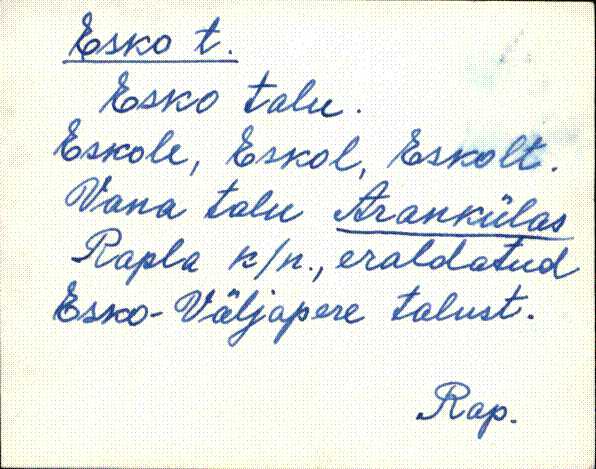 Esko t.
Esko talu.
Eskole, Eskol, Eskolt.
Vana talu Arankülas
Rapla k/n., eraldatud
Esko-Väljapere talust.
Rap.